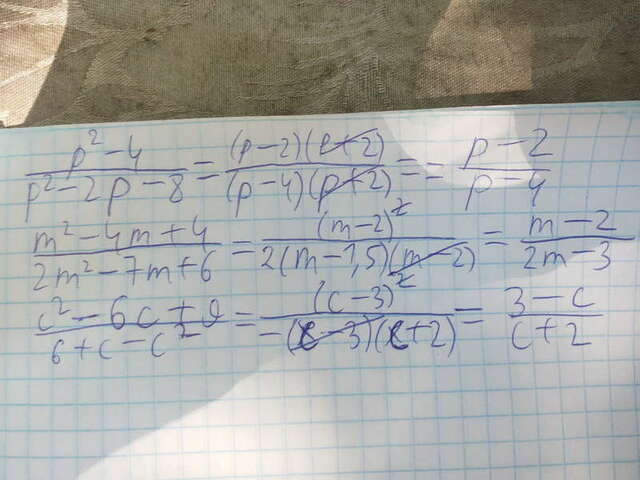 (p² - 4)/(p² - 2p - 8) = ((p-2)(p+2))/((p-4)(p+2)) = = (p-2)/(p-4)
(m² - 4m + 4)/(2m² - 7m + 6) = (m-2)²/(2(m-1,5)(m-2)) = (m-2)/(2m-3)
(c² - 6c + 9)/(6 + c - c²) = (c-3)²/(-(c-3)(c+2)) = (3-c)/(c+2)